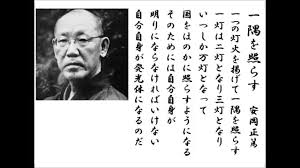 一隅を照らす　安岡正篤
一つの灯火を掲げて一隅を照らす
一灯は二灯となり三灯となり
いつしか万灯となって
国をほのかに照らすようになる
そのためには自分自身が
明りにならなければいけない
自分自身が発光体になるのだ